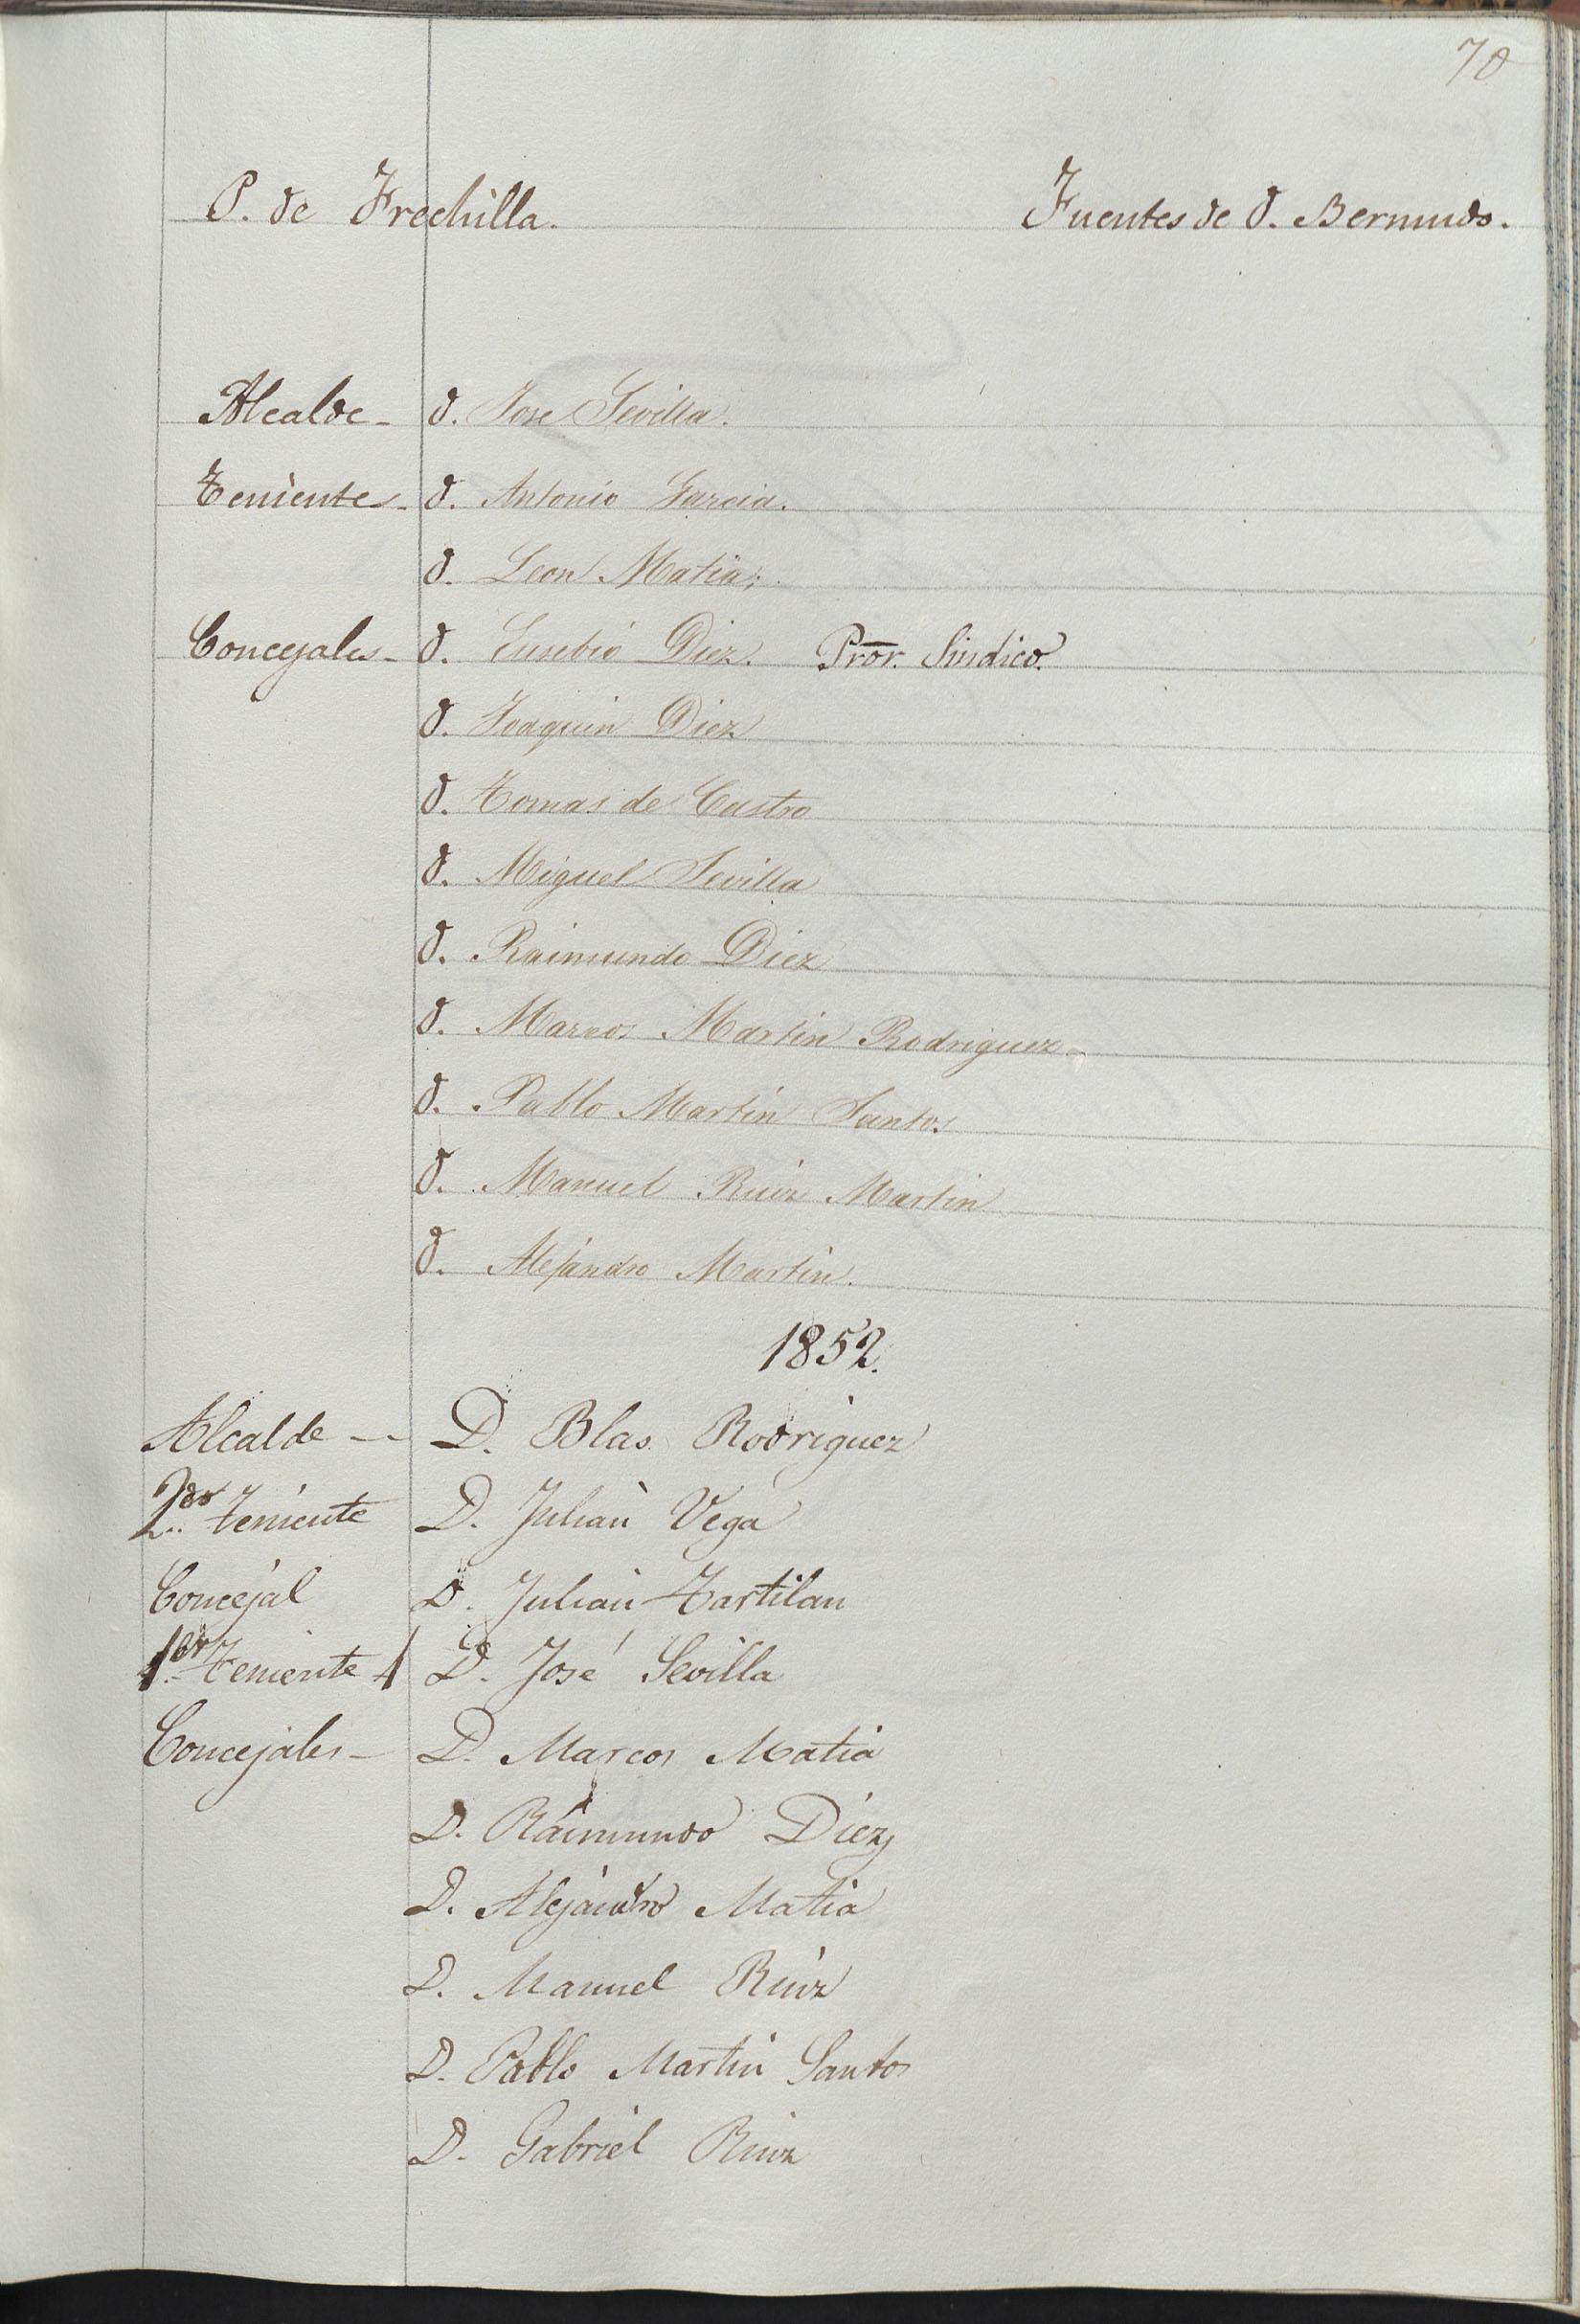 70
P. de Frechilla. Fuentes de D. Bermudo.
Alcalde - D. Jose Sevilla.
Teniente - D. Antonio Garcia.
D. Leon Matia.
Concejales - D. Eusebio Diez. Pror. Sindico.
D. Joaquin Diez
D. Tomas de Castro
D. Miguel Sevilla
D. Raimundo Diez
D. Marcos Martin Rodriguez
D. Pablo Martin Santos
D. Manuel Ruiz Martin
D. Alejandro Martin.
1852.
Alcalde -- D. Blas Rodriguez
2do Teniente D. Julian Vega
Concejal D. Julian Tartilan
1er Teniente D. José Sevilla
Concejales - D. Marcos Matia
D. Raimundo Diez
D. Alejandro Matia
D. Manuel Ruiz
D. Pablo Martin Santos
D. Gabriel Ruiz